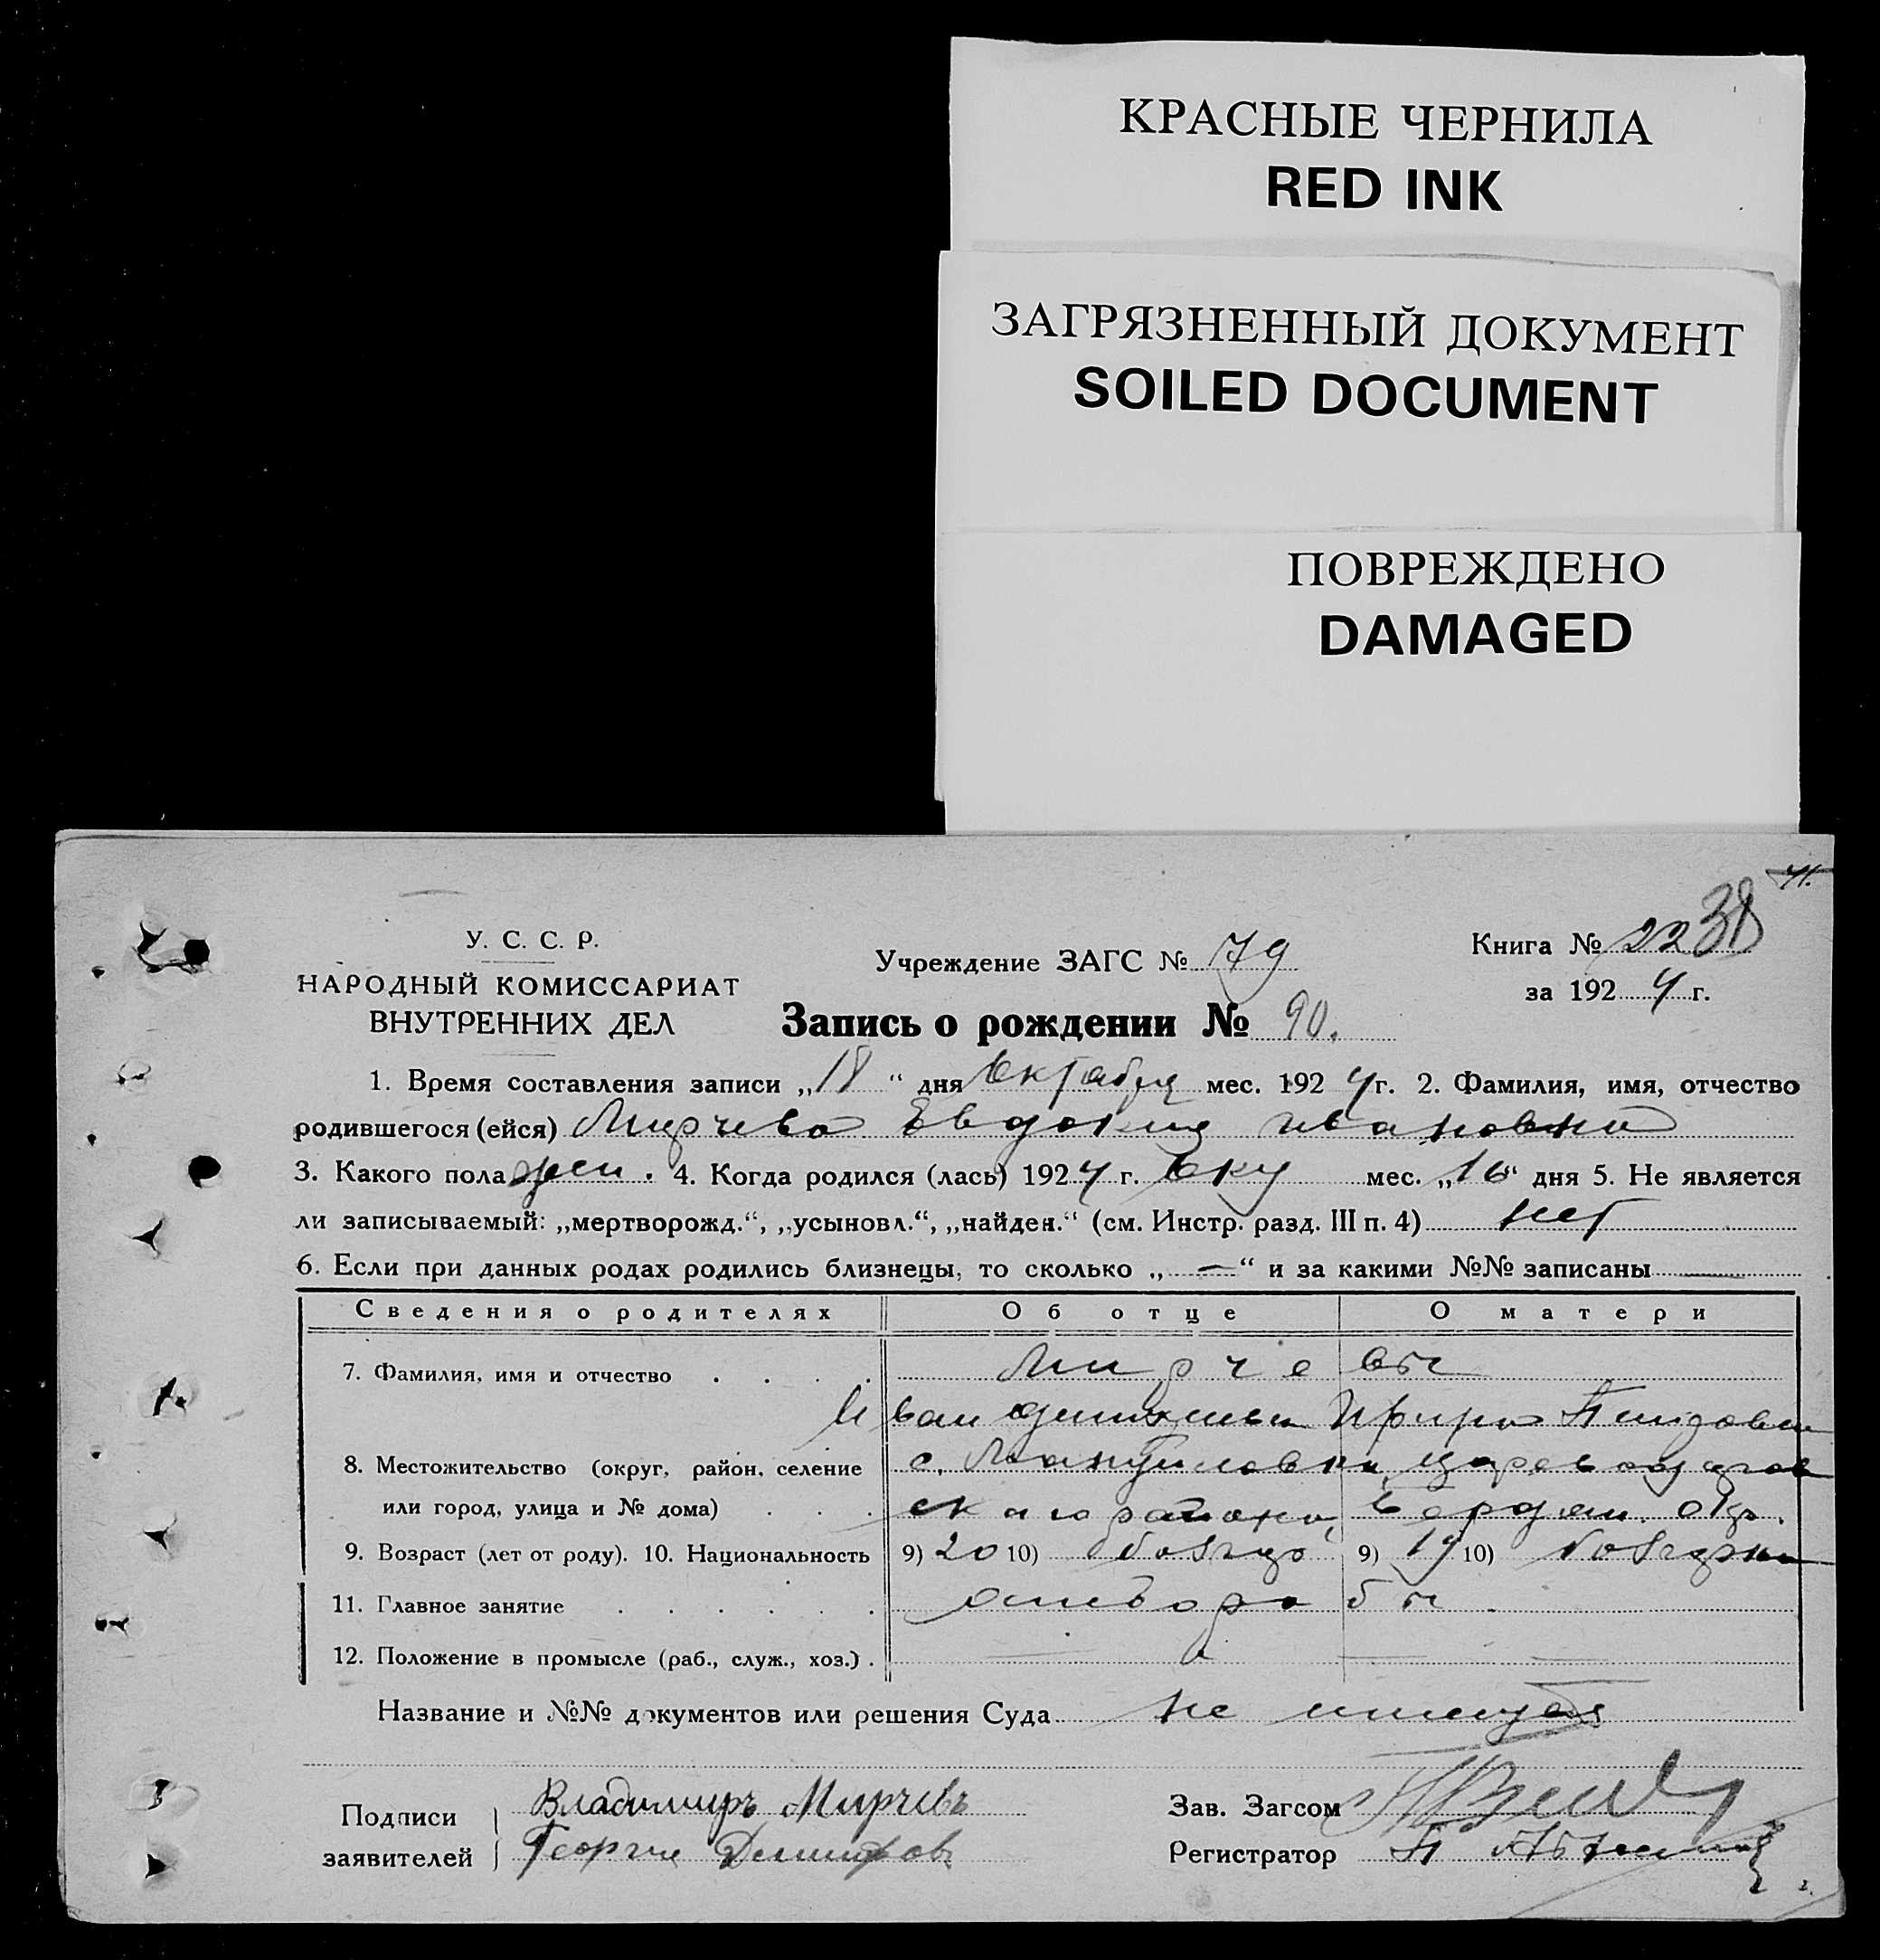 КРАСНЫЕ ЧЕРНИЛА
RED INK
ЗАГРЯЗНЕННЫЙ ДОКУМЕНТ
SOILED DOCUMENT
ПОВРЕЖДЕНО
DAMAGED
41.
38
У. С. С. Р.
НАРОДНЫЙ КОМИССАРИАТ
ВНУТРЕННИХ ДЕЛ
Учреждение ЗАГС № 79
Книга № 22
за 1924 г.
Запись о рождении № 90.
1. Время составления записи „18“ дня Октября мес. 1924 г. 2. Фамилия, имя, отчество
родившегося (ейся) Мирчева Евдокия Ивановна
3. Какого пола жен. 4. Когда родился (лась) 1924 г. Окт мес. „16“ дня 5. Не является
ли записываемый: „мертворожд.“, „усыновл.“, „найден.“ (см. Инстр. разд. III п. 4) нет
6. Если при данных родах родились близнецы, то сколько „ — “ и за какими №№ записаны —
Сведения о родителях Об отце О матери
7. Фамилия, имя и отчество . . . . Мирчевы
Иван
8. Местожительство (округ, район, селение с. Мануиловка
или город, улица и № дома) . . . ского района, Бердян. окр.
9. Возраст (лет от роду). 10. Национальность 9) 20 10) 9) 19 10)
11. Главное занятие . . . . . .
12. Положение в промысле (раб., служ., хоз.) .
Название и №№ документов или решения Суда не имеется
Подписи Владимиръ Мирчевъ
заявителей Георги Димитровъ
Зав. Загсом
Регистратор